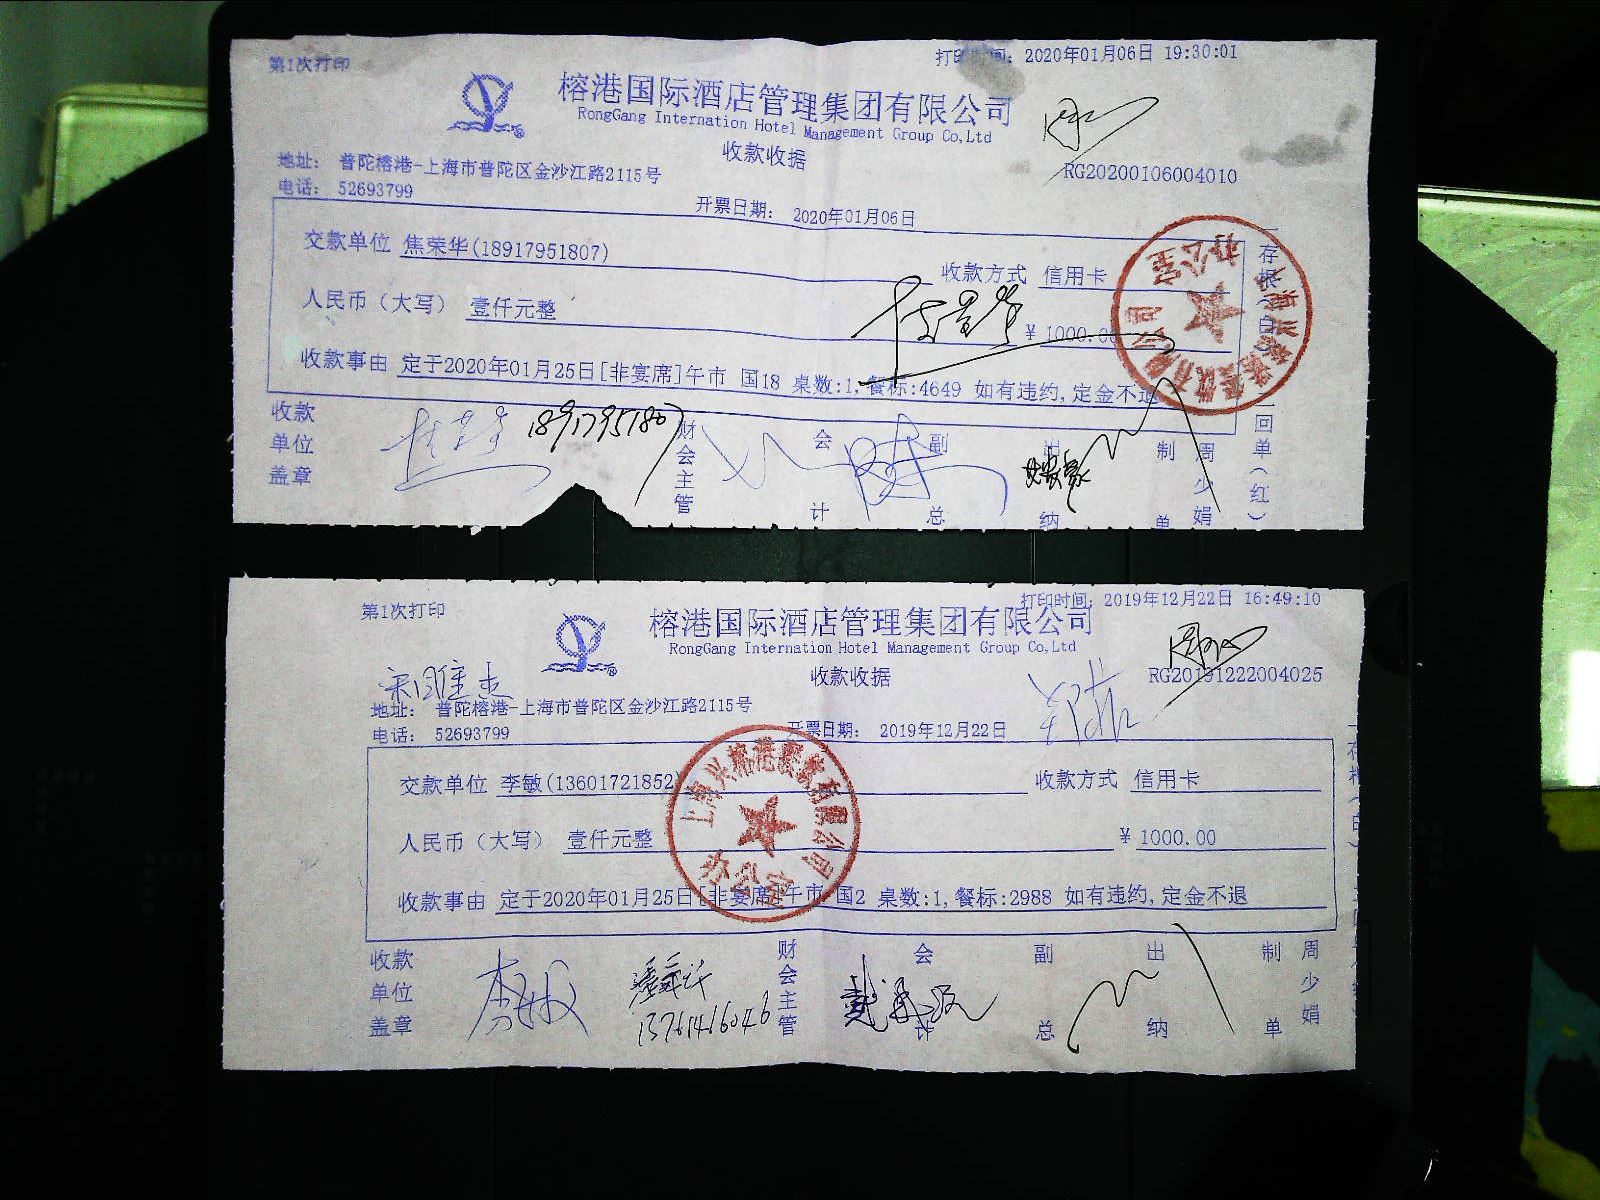 第1次打印
打印时间: 2020年01月06日 19:30:01
榕港国际酒店管理集团有限公司
RongGang Internation Hotel Management Group Co,Ltd
收款收据
RG20200106004010
地址: 普陀榕港-上海市普陀区金沙江路2115号
电话: 52693799
开票日期: 2020年01月06日
交款单位 焦荣华(18917951807)
收款方式 信用卡
人民币(大写) 壹仟元整
¥ 1000.00
收款事由 定于2020年01月25日[非宴席]午市 国18 桌数:1,餐标:4649 如有违约,定金不退
收款单位盖章
18917951807
财会主管
会计
副总
出纳
制单
周少娟
存根(白)
回单(红)
办公室
第1次打印
打印时间: 2019年12月22日 16:49:10
榕港国际酒店管理集团有限公司
RongGang Internation Hotel Management Group Co,Ltd
收款收据
RG20191222004025
地址: 普陀榕港-上海市普陀区金沙江路2115号
电话: 52693799
开票日期: 2019年12月22日
交款单位 李敏(13601721852)
收款方式 信用卡
人民币(大写) 壹仟元整
¥ 1000.00
收款事由 定于2020年01月25日[非宴席]午市 国2 桌数:1,餐标:2988 如有违约,定金不退
办公室
收款单位盖章
李敏
13761416046
财会主管
会计
副总
出纳
制单
周少娟